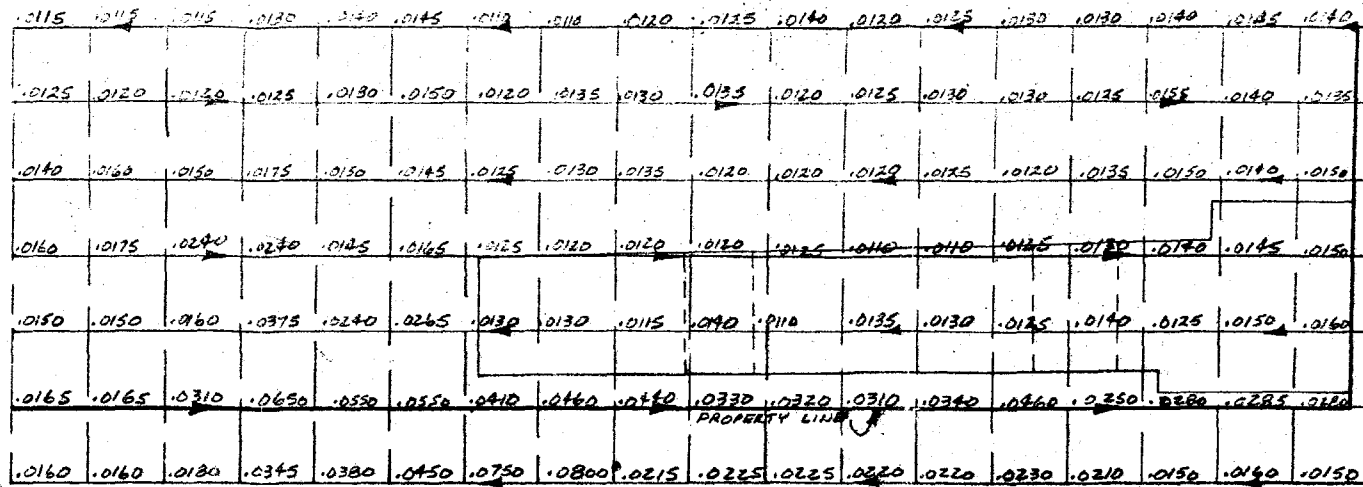 .0115 .0115 .0115 .0130 .0140 .0145 .0110 .0110 .0120 .0125 .0140 .0120 .0125 .0130 .0130 .0140 .0140
.0125 .0120 .0120 .0125 .0130 .0150 .0120 .0135 .0130 .0135 .0120 .0125 .0130 .0130 .0135 .0155 .0140 .0135
.0140 .0160 .0150 .0175 .0150 .0145 .0125 .0130 .0135 .0120 .0120 .0120 .0125 .0120 .0135 .0150 .0140 .0150
.0160 .0175 .0240 .0240 .0165 .0125 .0120 .0120 .0120 .0125 .0110 .0110 .0125 .0140 .0145 .0150
.0150 .0150 .0160 .0375 .0240 .0265 .0130 .0130 .0115 .0140 .0110 .0135 .0130 .0125 .0140 .0125 .0150 .0160
.0165 .0165 .0310 .0650 .0550 .0550 .0410 .0460 .0440 .0330 .0320 .0310 .0340 .0460 .0250 .0280 .0285 .0280
PROPERTY LINE
.0160 .0160 .0180 .0345 .0380 .0450 .0750 .0800 .0215 .0225 .0225 .0220 .0220 .0230 .0210 .0150 .0160 .0150